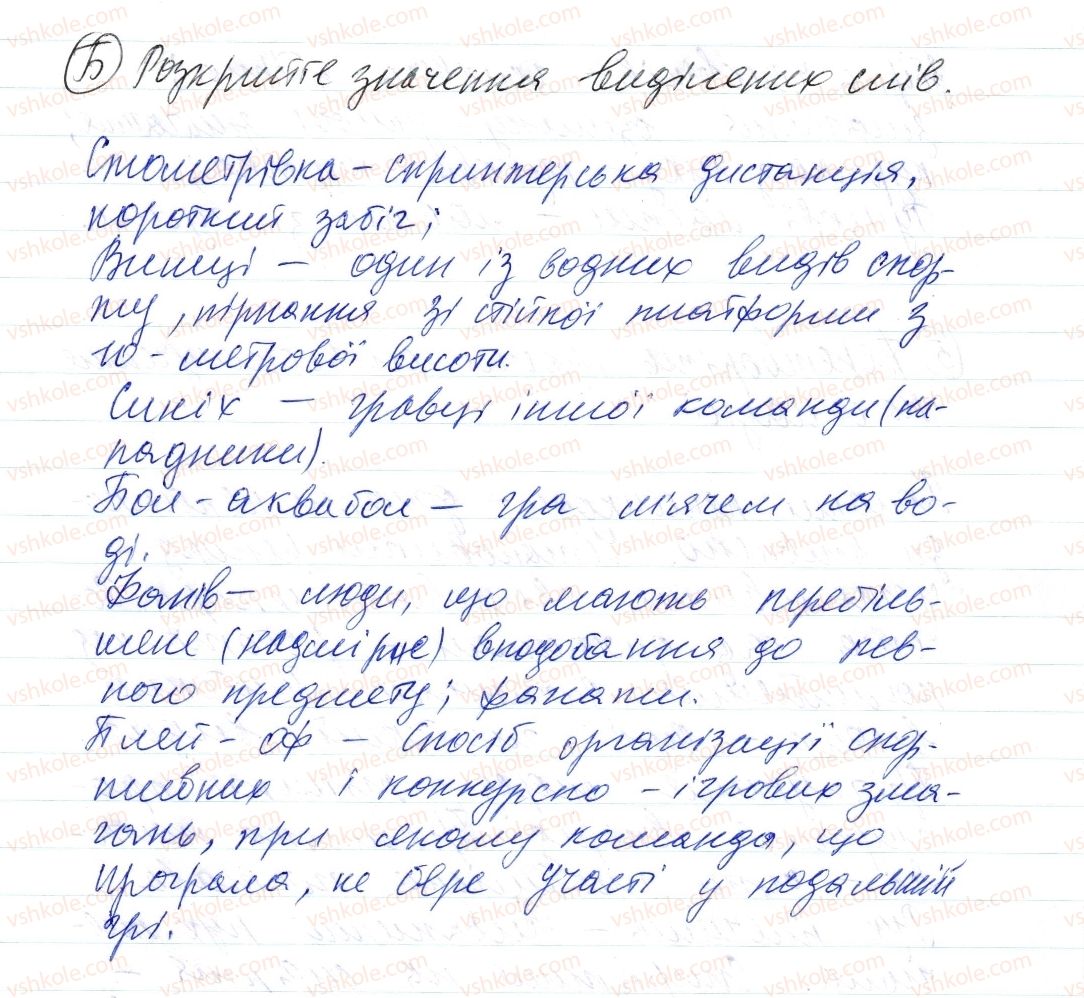 Б Розкрийте значення виділених слів.
Стометрівка – спринтерська дистанція,
короткий забіг;
Вишці – один із водних видів спор-
ту, пірнання зі стійкої платформи з
10-метрової висоти.
Синіх – гравці іншої команди (на-
падники).
Бол-аквабол – гра м'ячем на во-
ді.
Фанів – люди, що мають перебіль-
шене (надмірне) вподобання до пев-
ного предмету; фанати.
Плей-оф – спосіб організації спор-
тивних і конкурсно-ігрових зма-
гань, при якому команда, що
програла, не бере участі у подальшій
грі.